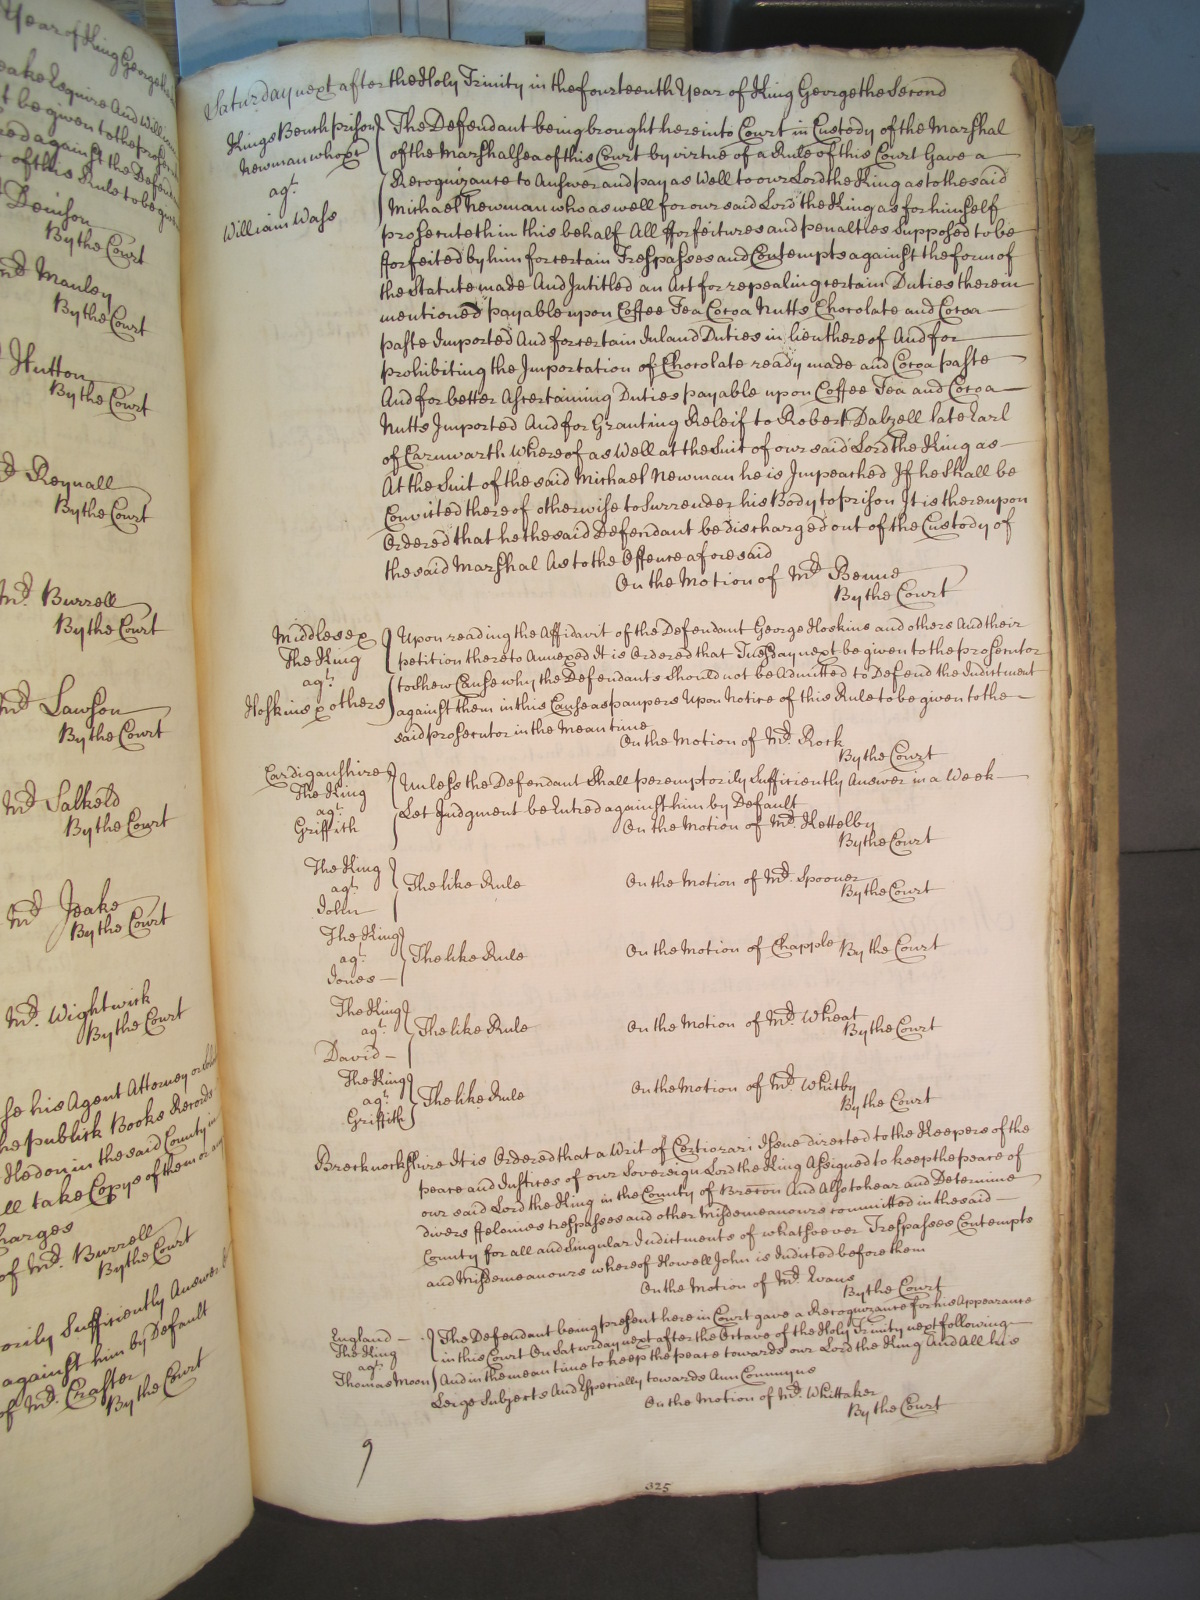 Year of King George the
eake Esquire And William
t be given to the prosecutor
ed against the Defendant
of this Rule to be given
Denison
By the Court
Mr. Manley
By the Court
Hutton
By the Court
Reynall
By the Court
Mr. Burrell
By the Court
Mr. Lawson
By the Court
Mr. Salkeld
By the Court
Mr. Jeake
By the Court
Mr. Wightwick
By the Court
se his Agent Attorney or
he publick Books Records
Hedon in the said County in
ll take Copys of them or any
harges
of Mr. Burrell
By the Court
orily Sufficiently Answer
against him by Default
of Mr. Crafter
By the Court
Saturday next after the Holy Trinity in the fourteenth Year of King George the Second
Kings Bench prison
Newman who &c
agt.
William Wass
The Defendant being brought here into Court in Custody of the Marshal
of the Marshalsea of this Court by virtue of a Rule of this Court Gave a
Recognizance to Answer and pay as Well to our Lord the King as to the said
Michael Newman who as well for our said Lord the King as for himself
prosecuteth in this behalf All fforfeitures and penalties Supposed to be
fforfeited by him for certain Trespasses and Contempts against the form of
the Statute made And Intitled an Act for repealing certain Duties therein
mentioned payable upon Coffee Tea Cocoa Nutts Chocolate and Cocoa
paste Imported And for certain Inland Duties in lieu thereof And for
prohibiting the Importation of Chocolate ready made and Cocoa paste
And for better Ascertaining Duties payable upon Coffee Tea and Cocoa
Nutts Imported And for Granting Releif to Robert Dalzell late Earl
of Carnwarth Whereof as Well at the Suit of our said Lord the King as
At the Suit of the said Michael Newman he is Impeached If he shall be
Convicted thereof otherwise to Surrender his Body to prison It is thereupon
Ordered that he the said Defendant be discharged out of the Custody of
the said Marshal As to the Offence aforesaid
On the Motion of Mr. Benne
By the Court
Middlesex
The King
agt.
Hoskins & others
Upon reading the Affidavit of the Defendant George Hoskins and others And their
petition thereto Annexed It is Ordered that Tuesday next be given to the prosecutor
to shew Cause why the Defendants should not be Admitted to Defend the Indictment
against them in this Cause as paupers Upon Notice of this Rule to be given to the
said prosecutor in the mean time
On the Motion of Mr. Rock
By the Court
Cardiganshire
The King
agt.
Griffith
Unless the Defendant Shall peremptorily Sufficiently Answer in a Week
Let Judgment be Entred against him by Default
On the Motion of Mr. Kettelby
By the Court
The King
agt.
John
The like Rule
On the Motion of Mr. Spooner
By the Court
The King
agt.
Jones
The like Rule
On the Motion of Chapple By the Court
The King
agt.
David
The like Rule
On the Motion of Mr. Wheat
By the Court
The King
agt.
Griffith
The like Rule
On the Motion of Mr. Whitby
By the Court
Brecknockshire It is Ordered that a Writ of Certiorari Issue directed to the Keepers of the
peace and Justices of our Sovereign Lord the King Assigned to keep the peace of
our said Lord the King in the County of Brecon And Also to hear and Determine
divers ffelonies trespasses and other Misdemeanours committed in the said
County for all and Singular Indictments of whatsoever Trespasses Contempts
and Misdemeanours whereof Howell John is Indicted before them
On the Motion of Mr. Evans
By the Court
England
The King
agt.
Thomas Moon
The Defendant being present here in Court gave a Recognizance for his Appearance
in this Court On Saturday next after the Octave of the Holy Trinity next following
And in the mean time to keep the peace towards our Lord the King And All his
Leige Subjects And Especially towards Ann
On the Motion of Mr. Whittaker
By the Court
9
325